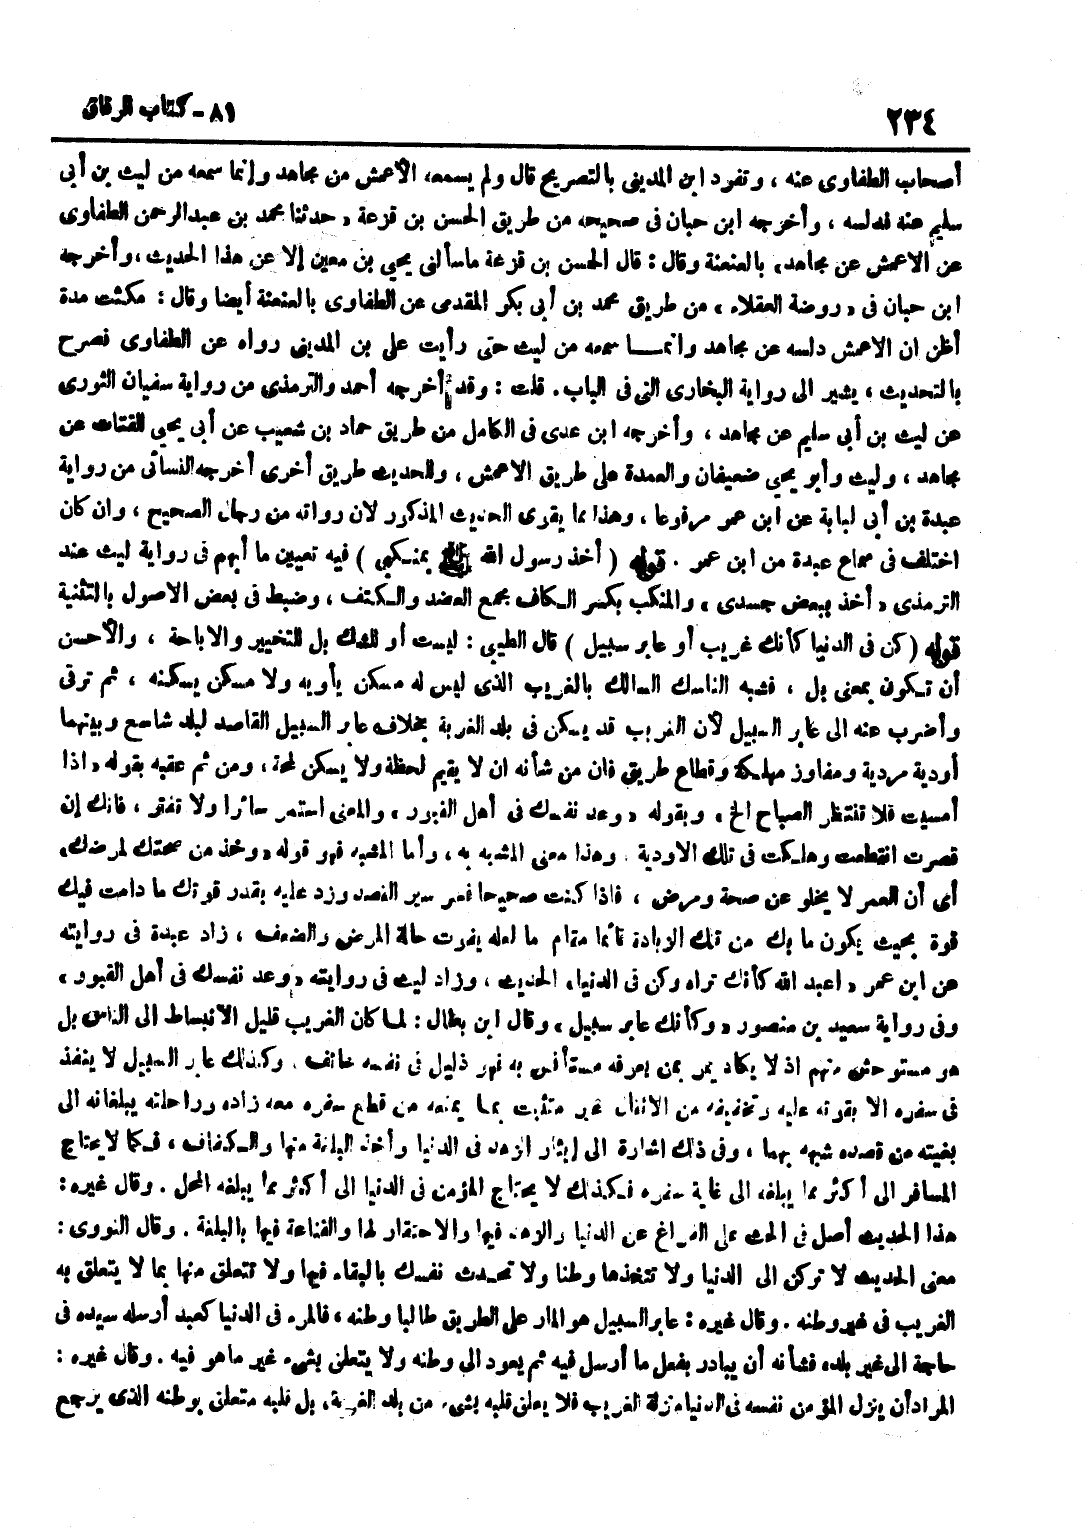 ٢٣٤
٨١ - كتاب الرقاق
أصحاب الطفاوى عنه ، وتفرد ابن المدينى بالتصريح قال ولم يسمعه الأعمش من مجاهد وإنما سمعه من ليث بن أبى
سليم عنه فدلسه ، وأخرجه ابن حبان فى صحيحه من طريق الحسن بن قزعة « حدثنا محمد بن عبدالرحمن الطفاوى
عن الاعمش عن مجاهد » بالعنعنة وقال : قال الحسن بن قزعة ماسألنى يحيى بن معين إلا عن هذا الحديث ، وأخرجه
ابن حبان فى « روضة العقلاء » من طريق محمد بن أبى بكر المقدمى عن الطفاوى بالعنعنة أيضا وقال : مكثت مدة
أظن ان الاعمش دلسه عن مجاهد وانما سمعه من ليث حتى رأيت على بن المدينى رواه عن الطفاوى فصرح
بالتحديث ، يشير الى رواية البخارى التى فى الباب . قلت : وقد أخرجه أحمد والترمذى من رواية سفيان الثورى
عن ليث بن أبى سليم عن مجاهد ، وأخرجه ابن عدى فى الكامل من طريق حماد بن شعيب عن أبى يحيى القتات عن
مجاهد ، وليث وأبو يحيى ضعيفان والعمدة على طريق الاعمش ، وللحديث طريق أخرى أخرجه النسائى من رواية
عبدة بن أبى لبابة عن ابن عمر مرفوعا ، وهذا مما يقوى الحديث المذكور لان رواته من رجال الصحيح ، وان كان
اختلف فى سماع عبدة من ابن عمر . قوله ( أخذ رسول الله ﷺ بمنكبى ) فيه تعيين ما أبهم فى رواية ليث عند
الترمذى « أخذ ببعض جسدى » والمنكب بكسر الكاف مجمع العضد والكتف ، وضبط فى بعض الاصول بالتثنية
قوله ( كن فى الدنيا كأنك غريب أو عابر سبيل ) قال الطيبى : ليست أو للشك بل للتخيير والاباحة ، والأحسن
أن تكون بمعنى بل ، فشبه الناسك السالك بالغريب الذى ليس له مسكن يأويه ولا مسكن يسكنه ، ثم ترقى
وأضرب عنه الى عابر السبيل لأن الغريب قد يسكن فى بلد الغربة بخلاف عابر السبيل القاصد لبلد شاسع وبينهما
أودية مردية ومفاوز مهلكة وقطاع طريق فان من شأنه ان لا يقيم لحظة ولا يسكن لمحة ، ومن ثم عقبه بقوله « اذا
أمسيت فلا تنتظر الصباح الخ » وبقوله « وعد نفسك فى أهل القبور » والمعنى استمر سائرا ولا تفتر ، فانك إن
قصرت انقطعت وهلكت فى تلك الاودية . وهذا معنى المشبه به ، وأما المشبه فهو قوله « وخذ من صحتك لمرضك »
أى أن العمر لا يخلو عن صحة ومرض ، فاذا كنت صحيحا فسر سير القصد وزد عليه بقدر قوتك ما دامت فيك
قوة بحيث يكون ما بك من تلك الزيادة قائما مقام ما لعله يفوت حالة المرض والضعف ، زاد عبدة فى روايته
عن ابن عمر « اعبد الله كأنك تراه وكن فى الدنيا » الحديث ، وزاد ليث فى روايته « وعد نفسك فى أهل القبور »
وفى رواية سعيد بن منصور « وكأنك عابر سبيل » وقال ابن بطال : لما كان الغريب قليل الأنبساط الى الناس بل
هو مستوحش منهم اذ لا يكاد يمر بمن يعرفه مستأنس به فهو ذليل فى نفسه خائف ، وكذلك عابر السبيل لا ينفذ
فى سفره الا بقوته عليه وتخفيفه من الاثقال غير متثبت بما يمنعه من قطع سفره معه زاده وراحلته يبلغانه الى
بغيته من قصده شبهه بهما ، وفى ذلك اشارة الى إيثار الزهد فى الدنيا وأخذ البلغة منها والكفاف ، فكما لا يحتاج
المسافر الى أكثر مما يبلغه الى غاية سفره فكذلك لا يحتاج المؤمن فى الدنيا الى أكثر مما يبلغه المحل . وقال غيره :
هذا الحديث أصل فى الحث على الفراغ عن الدنيا والزهد فيها والاحتقار لها والقناعة فيها بالبلغة . وقال النووى :
معنى الحديث لا تركن الى الدنيا ولا تتخذها وطنا ولا تحدث نفسك بالبقاء فيها ولا تتعلق منها بما لا يتعلق به
الغريب فى غير وطنه . وقال غيره : عابر السبيل هو المار على الطريق طالبا وطنه ، فالمرء فى الدنيا كعبد أرسله سيده فى
حاجة الى غير بلده فشأنه أن يبادر بفعل ما أرسل فيه ثم يعود الى وطنه ولا يتعلق بشىء غير ماهو فيه . وقال غيره :
المراد أن ينزل المؤمن نفسه فى الدنيا منزلة الغريب فلا يعلق قلبه بشىء من بلد الغربة ، بل قلبه متعلق بوطنه الذى يرجع